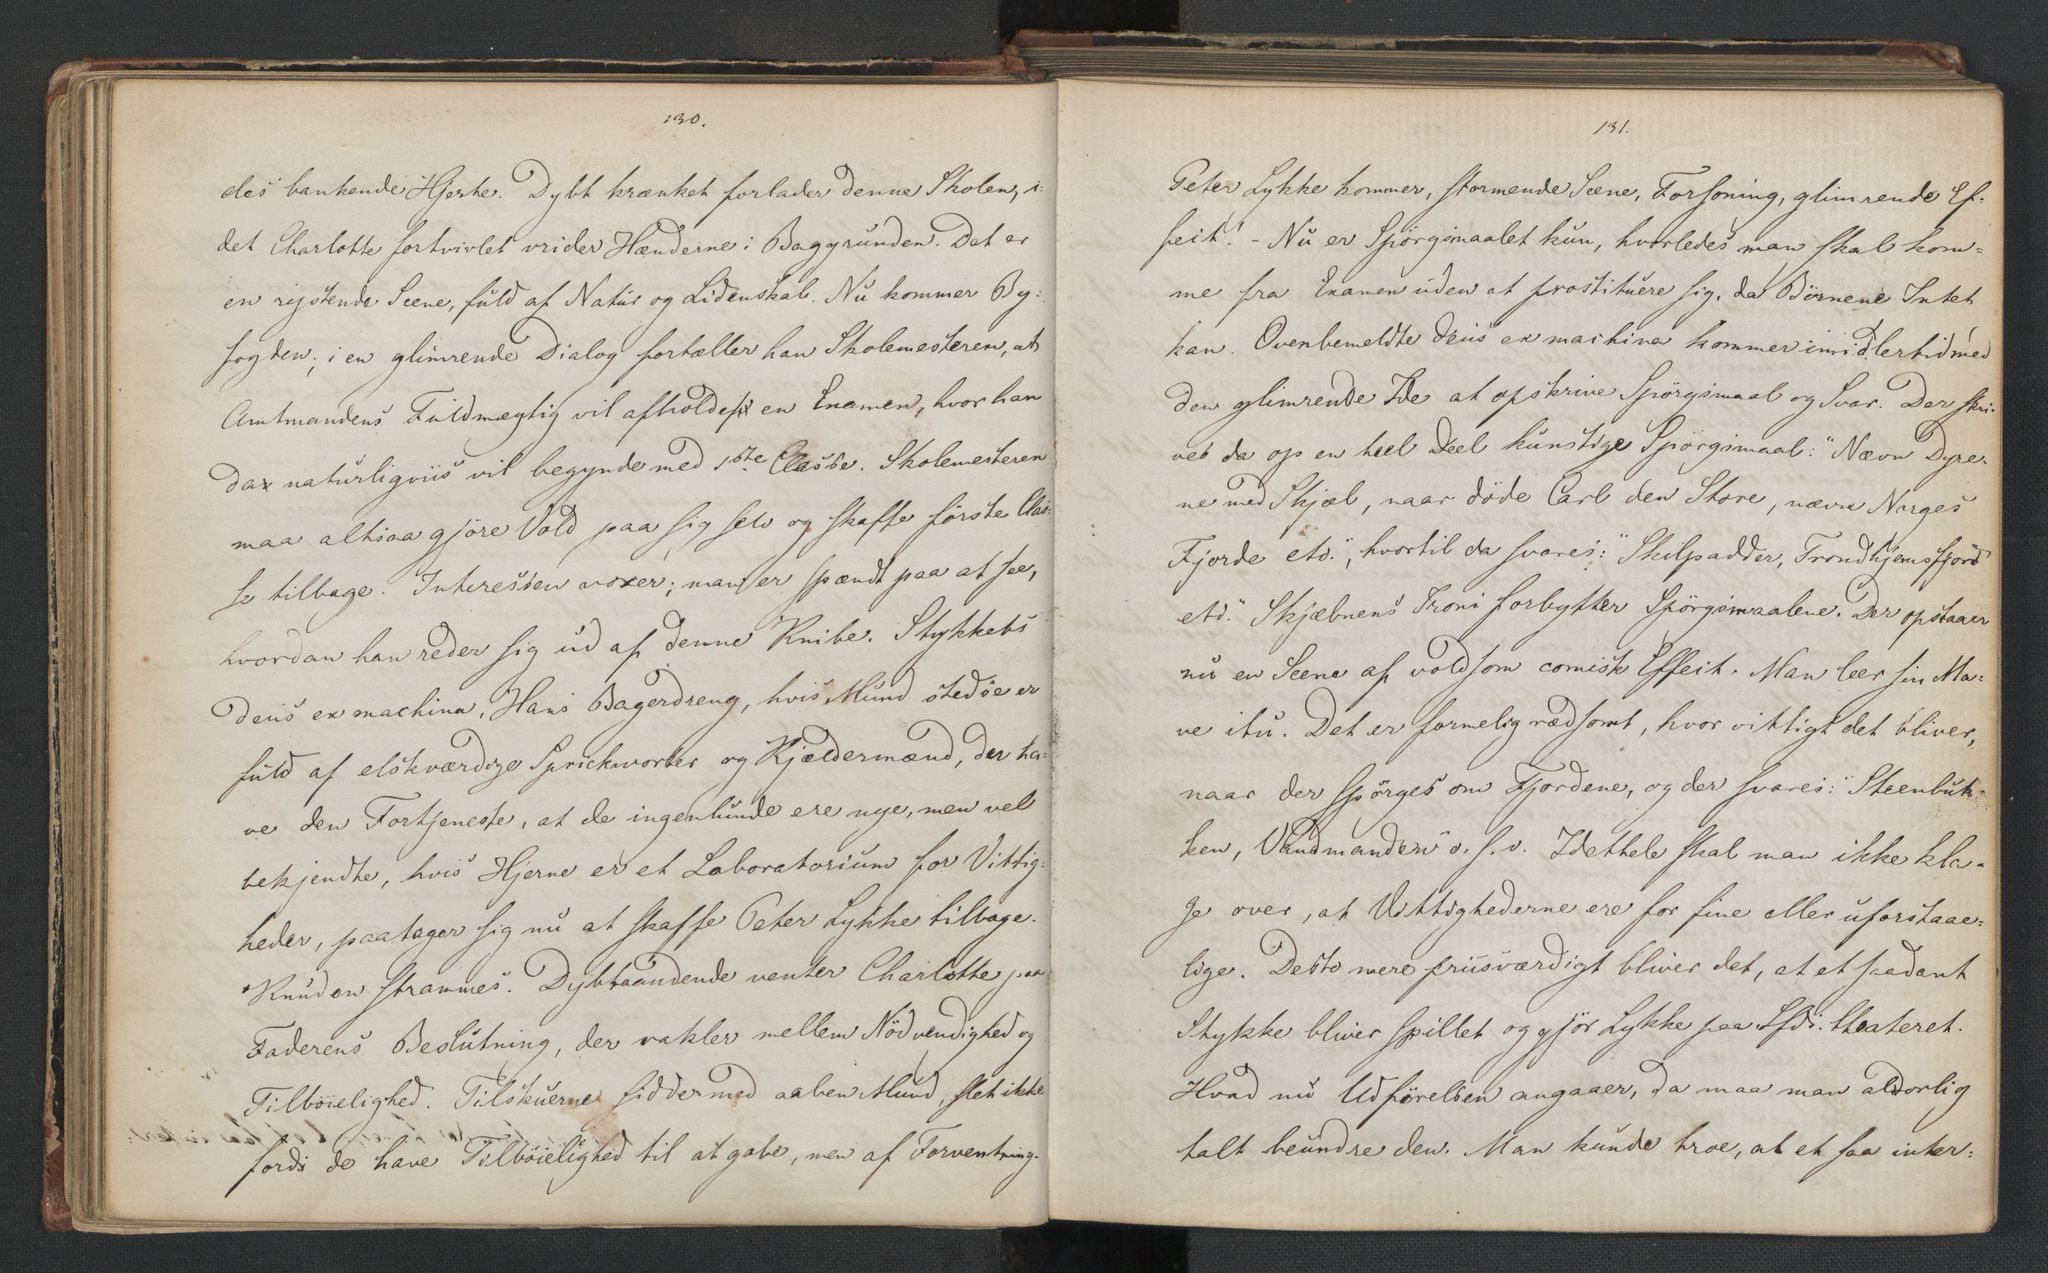 130.
des bankende Hjerte. Dybt krænket forlader denne Skolen, i:
det Charlotte fortvivlet vrider Hænderne i Baggrunden. Det er
en rystende Scene, fuld af Natur og Lidenskab. Nu kommer By:
fogden; i en glimrende Dialog fortæller han Skolemesteren, at
Amtmandens Fuldmægtig vil afholde en Examen, hvor han
da naturligviis vil begynde med 1ste Classe. Skolemesteren
maa altsaa gjöre Vold paa sig selv og skaffe förste Clas:
se tilbage. Interessen voxer; man er spændt paa at see,
hvordan han reder sig ud af denne Knibe. Stykkets
deus ex machina, Hans Bagerdreng, hvis Mund stedse er
fuld af elskværdige Sprichworter og Kjældermænd, der ha:
ve den Fortjeneste, at de ingenlunde ere nye, men vel
bekjendte, hvis Hjerne er et Laboratorium for Vittig:
heder, paatager sig nu at skaffe Peter Lykke tilbage.
Knuden strammes. Dybtaandende venter Charlotte paa
Faderens Beslutning, der vakler mellem Nödvendighed og
Tilböielighed. Tilskuerne sidder med aaben Mund, slet ikke
fordi de have Tilböielighed til at gabe, men af Forventning.
131.
Peter Lykke kommer, stormende Scene, Forsoning, glimrende Ef-
feit! - Nu er Spörgsmaalet kun, hvorledes man skal kom=
me fra Examen uden at prostituere sig, da Börnene Intet
kan. Ovenbemeldte deus ex machina kommer imidlertid med
den glimrende Ide at opskrive Spörgsmaal og Svar. Der skri-
ves da op en heel Deel kunstige Spörgsmaal: "Nævn Dyre-
ne med Skjæl, naar döde Carl den Store, nævn Norges
Fjorde etc.", hvortil da svares: "Skilpadder, Trondhjemsfjord
etc." Skjæbnens Ironi forbytter Spörgsmaalene. Der opstaaer
nu en Scene af voldsom comisk Effeit. Man leer sin Ma=
ve itu. Det er formelig rædsomt, hvor vittigt det bliver,
naar der spörges om Fjordene, og der svares: "Steenbuk-
ken, Vandmanden" o. s. v. Idethele skal man ikke kla-
ge over, at Vittighederne ere for fine eller uforstaae=
lige. Desto mere priisværdigt bliver det, at et saadant
Stykke bliver spillet og gjör Lykke paa theateret.
Hvad nu Udförelsen angaaer, da maa man alvorlig
talt beundre den. Man kunde troe, at et saa inter: